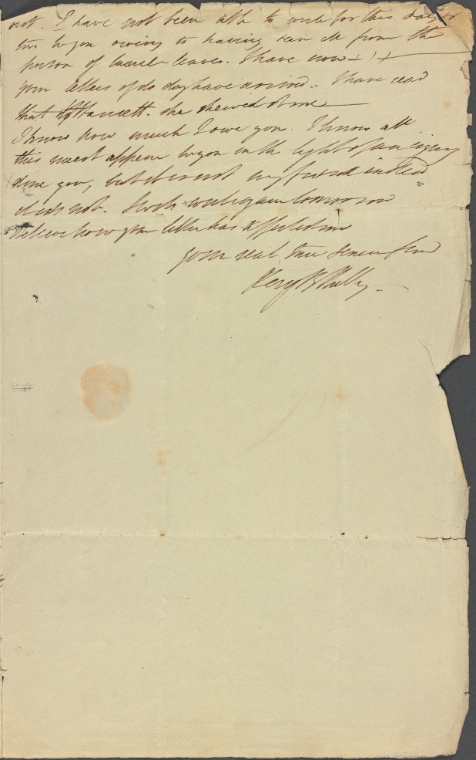 not. I have not been able to write for this day or
two to you owing to having been ill from the
poison of laurel-leaves. I have now + ' +
your letters of to day have arrived. I have read
that to Harriett. she shewed it me
I know how much I owe you. I know all
this must appear to you in the light of an injury
done you, but it is not my friend indeed
it is not. I will write again tomorrow
believe how your letter has affected me
your real true sincere friend
Percy B Shelley.